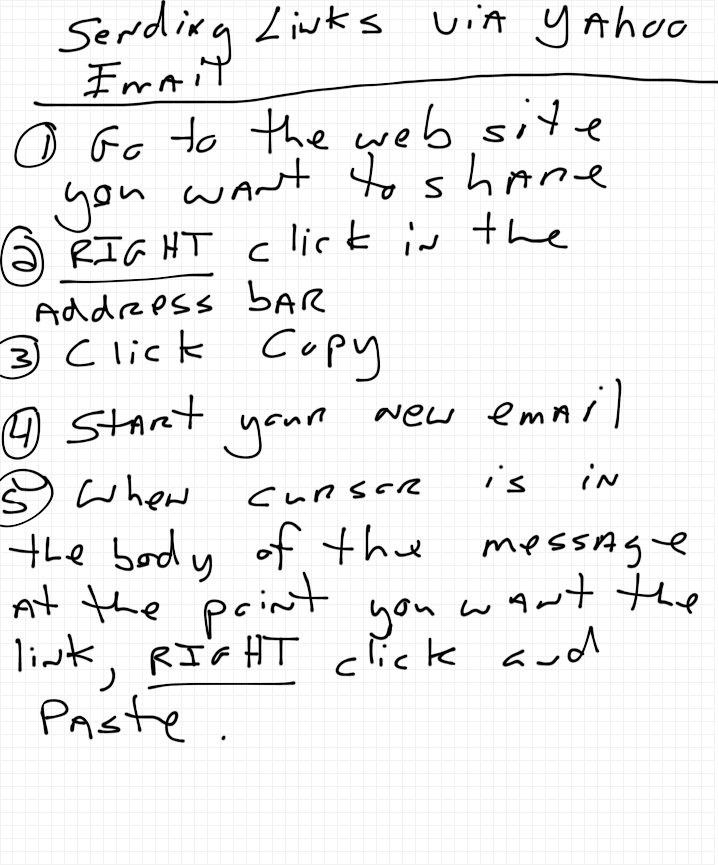 Sending Links via Yahoo
Email
① Go to the web site
you want to share
② RIGHT click in the
Address bar
③ Click Copy
④ Start your new email
⑤ When cursor is in
the body of the message
at the point you want the
link, RIGHT click and
Paste.